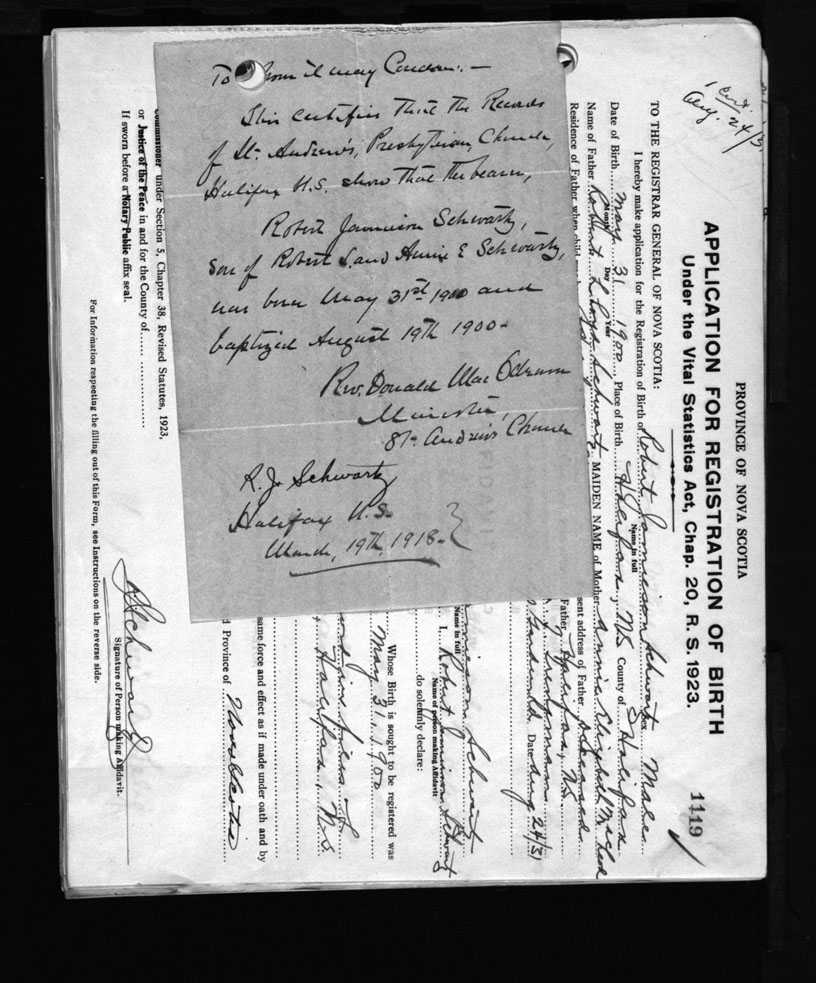 To whom it may Concern:—
This certifies that the Records
of St. Andrew's, Presbyterian, Church,
Halifax N.S. show that the bearer,
Robert Jamieson Schwartz,
son of Robert L. and Annie E Schwartz,
was born May 31st 1900 and
baptized August 19th 1900-
Rev. Donald Mac Odrum
Minister,
St. Andrew's Church
R. J. Schwartz
Halifax N.S.
March, 19th, 1918-
1 Cert.
Aug. 24/31
PROVINCE OF NOVA SCOTIA
1119
APPLICATION FOR REGISTRATION OF BIRTH
Under the Vital Statistics Act, Chap. 20, R. S. 1923.
TO THE REGISTRAR GENERAL OF NOVA SCOTIA:
I hereby make application for the Registration of Birth of Robert Jamieson Schwartz Sex Male
Name in full
Date of Birth May 31 1900 Place of Birth Halifax, NS County of Halifax
Month Day Year
Name of Father Robert Lloyd Schwartz MAIDEN NAME of Mother Annie Elizabeth
Residence of Father when child was
sent address of Father deceased
Father
Halifax, NS
Date Aug 24/31
Jamieson Schwartz
Name in full
I, Robert Jamieson Schwartz
Name of person making Affidavit
do solemnly declare:
Whose Birth is sought to be registered was
May 31, 1900
Halifax, N.S.
same force and effect as if made under oath and by
d Province of Nova Scotia
Commissioner under Section 5, Chapter 38, Revised Statutes, 1923,
or Justice of the Peace in and for the County of
If sworn before a Notary Public affix seal.
R J Schwartz
Signature of Person making Affidavit.
For Information respecting the filling out of this Form, see Instructions on the reverse side.